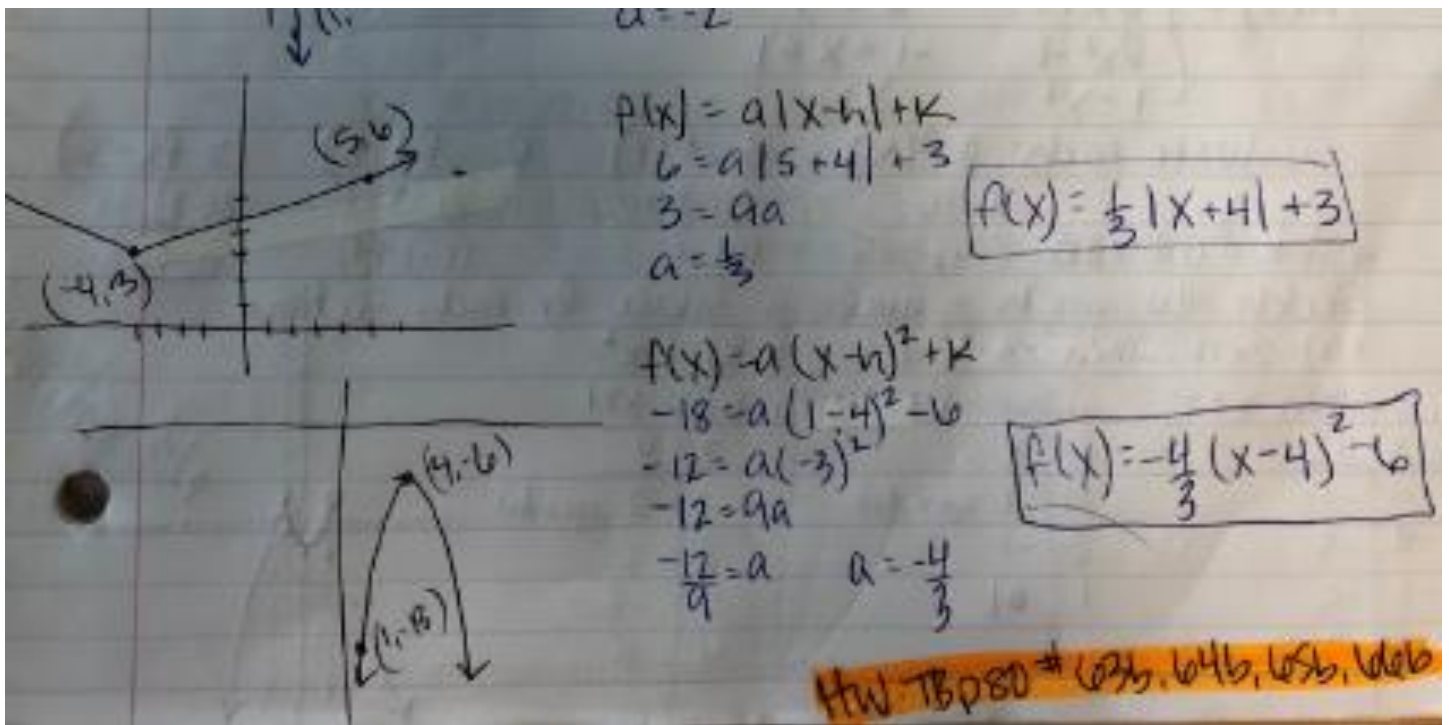 a = -2
(5,6)
(-4,3)
f(x) = a|x-h|+k
6 = a|5+4| + 3
3 = 9a
a = 1/3
f(x) = 1/3 |x+4| + 3
f(x) = a(x-h)² + k
-18 = a(1-4)² - 6
-12 = a(-3)²
-12 = 9a
-12/9 = a a = -4/3
f(x) = -4/3 (x-4)² - 6
(4,-6)
(1,-18)
HW TB p80 # 63b, 64b, 65b, 66b